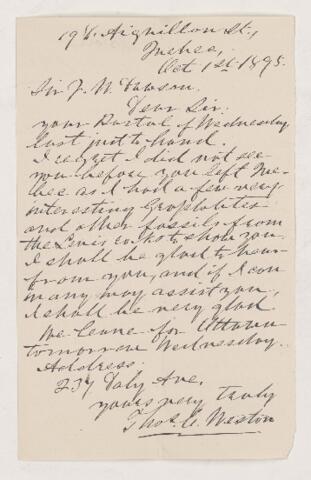 Aiguillon St.,
Quebec,
Oct 1st 1895.
Sir J. W. Dawson.
Dear Sir.
your Postal of Wednesday
last just to hand.
I regret I did not see
you before you left Que-
bec as I had a few very
interesting Graptolites
and other fossils from
the Levis rocks to show you.
I shall be glad to hear
from you, and if I can
in any way assist you,
I shall be very glad.
We leave for Ottawa
tomorrow Wednesday.
Address.
237 Daly Ave.
yours very truly
Thos. C. Weston